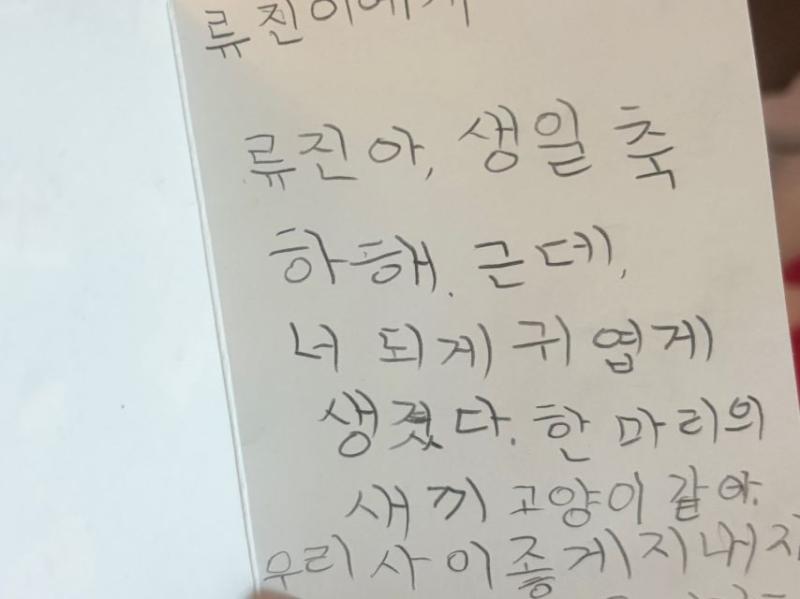 류진이에게
류진아, 생일 축
하해. 근데,
너 되게 귀엽게
생겼다. 한 마리의
새끼 고양이 같아.
우리 사이좋게 지내자